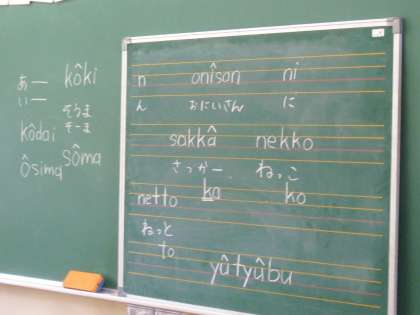 あー kôki
いー
そうま
そーま
kôdai
Sôma
Ôsima
n onîsan ni
ん おにいさん に
sakkâ nekko
さっかー ねっこ
netto ka ko
ねっと
to
yûtyûbu